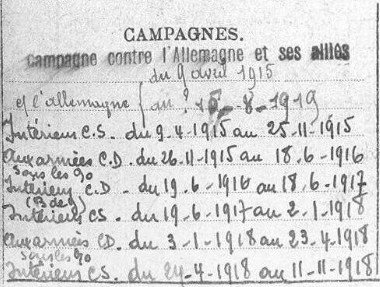 CAMPAGNES.
Campagne contre l'Allemagne et ses alliés
du 9 avril 1915
c/ l'allemagne { au ? 15 - 8 - 1919
Intérieur C.S. du 9.4.1915 au 25-11-1915
Aux armées C.D. du 26-11-1915 au 18.6-1916
sous les 90
Intérieur C.D. du 19.6-1916 au 18.6-1917
(B de g)
Intérieur CS. du 19.6-1917 au 2-1-1918
Aux armées CD. du 3-1-1918 au 23-4-1918
sous les 90
Intérieur CS. du 24-4-1918 au 11-11-1918